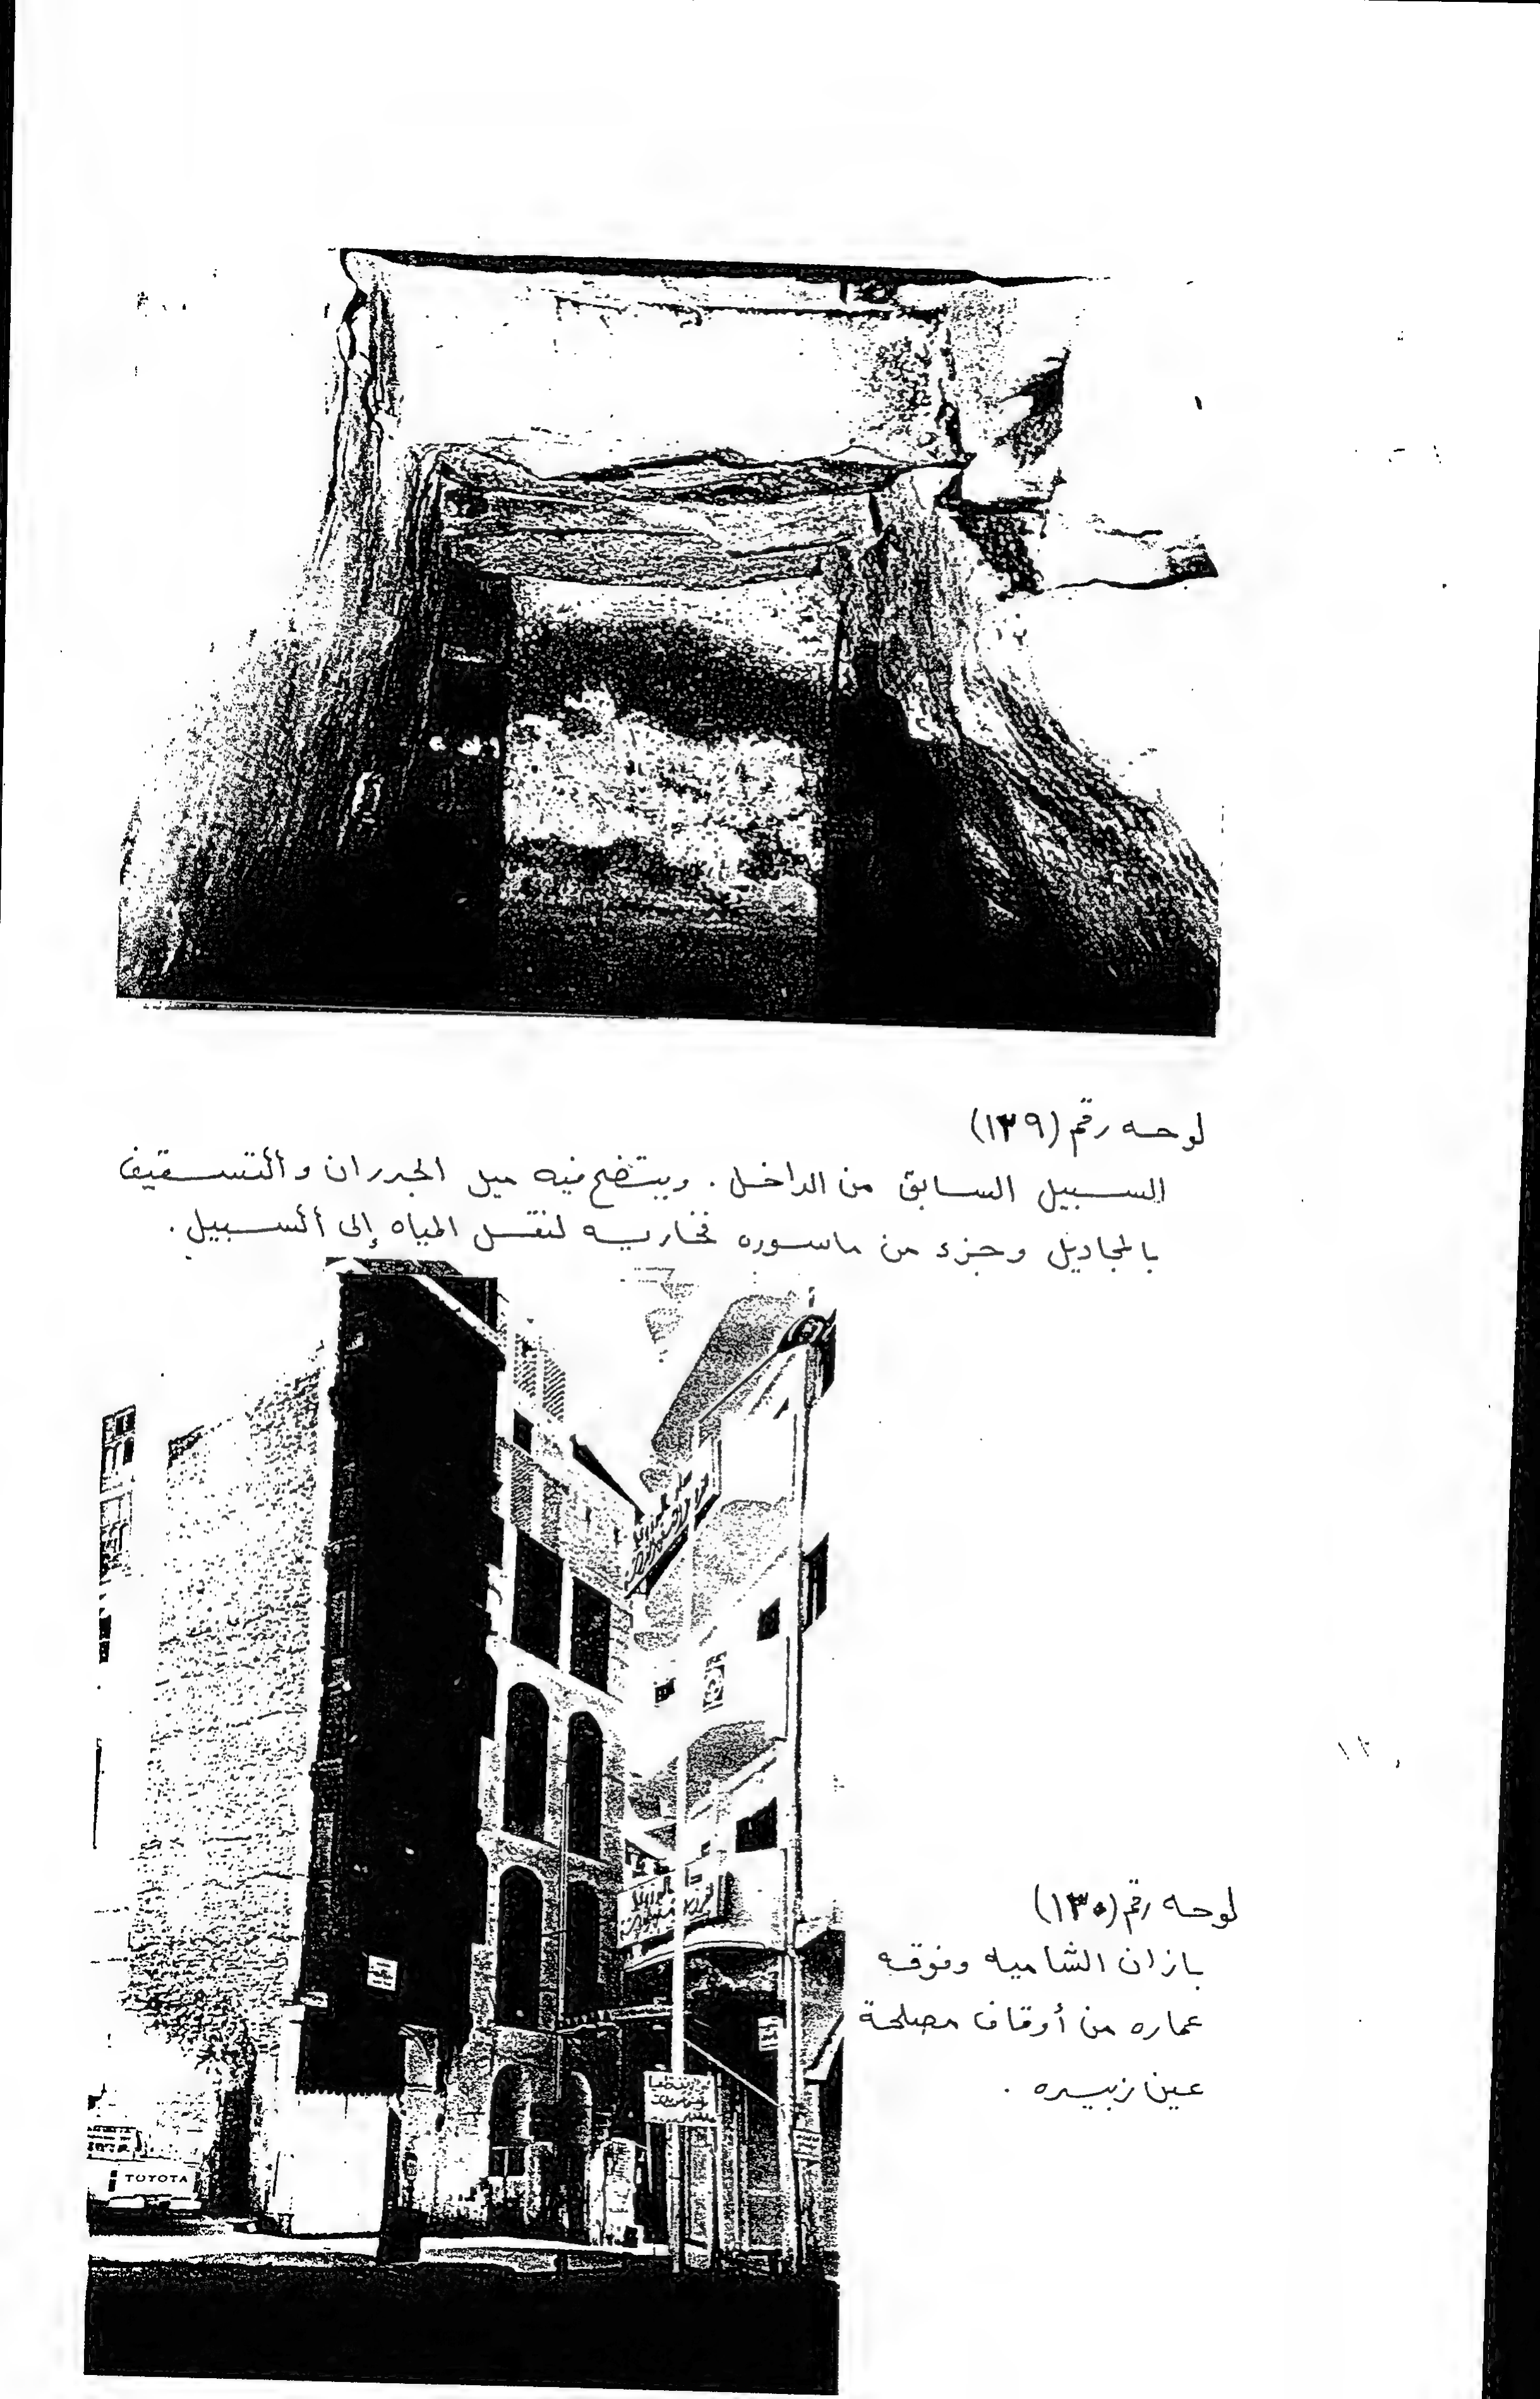 لوحه رقم (١٣٩)
السبيل السابق من الداخل . ويتضح فيه ميل الجدران والتسقيف
بالمجاديل وجزء من ماسوره فخاريه لنقل المياه إلى السبيل .
لوحه رقم (١٣٠)
بازان الشاميه وفوقه
عماره من أوقاف مصلحة
عين زبيده .
TOYOTA